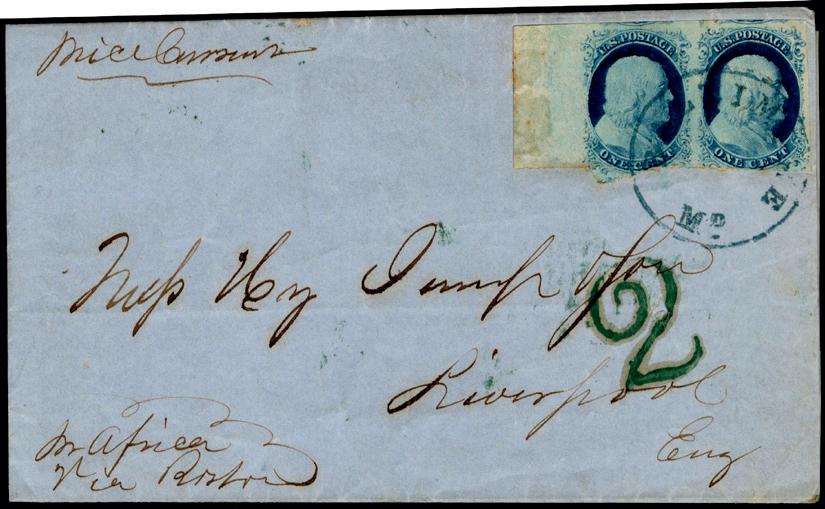 Price Current
U.S. POSTAGE
ONE CENT
U.S. POSTAGE
ONE CENT
IM E
MD
2
Mess Hy & Son
Liverpool
Eng
pr Africa
Via Boston